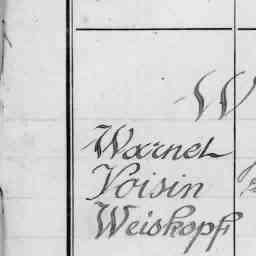 W
Warnet
Voisin
Weiskopf